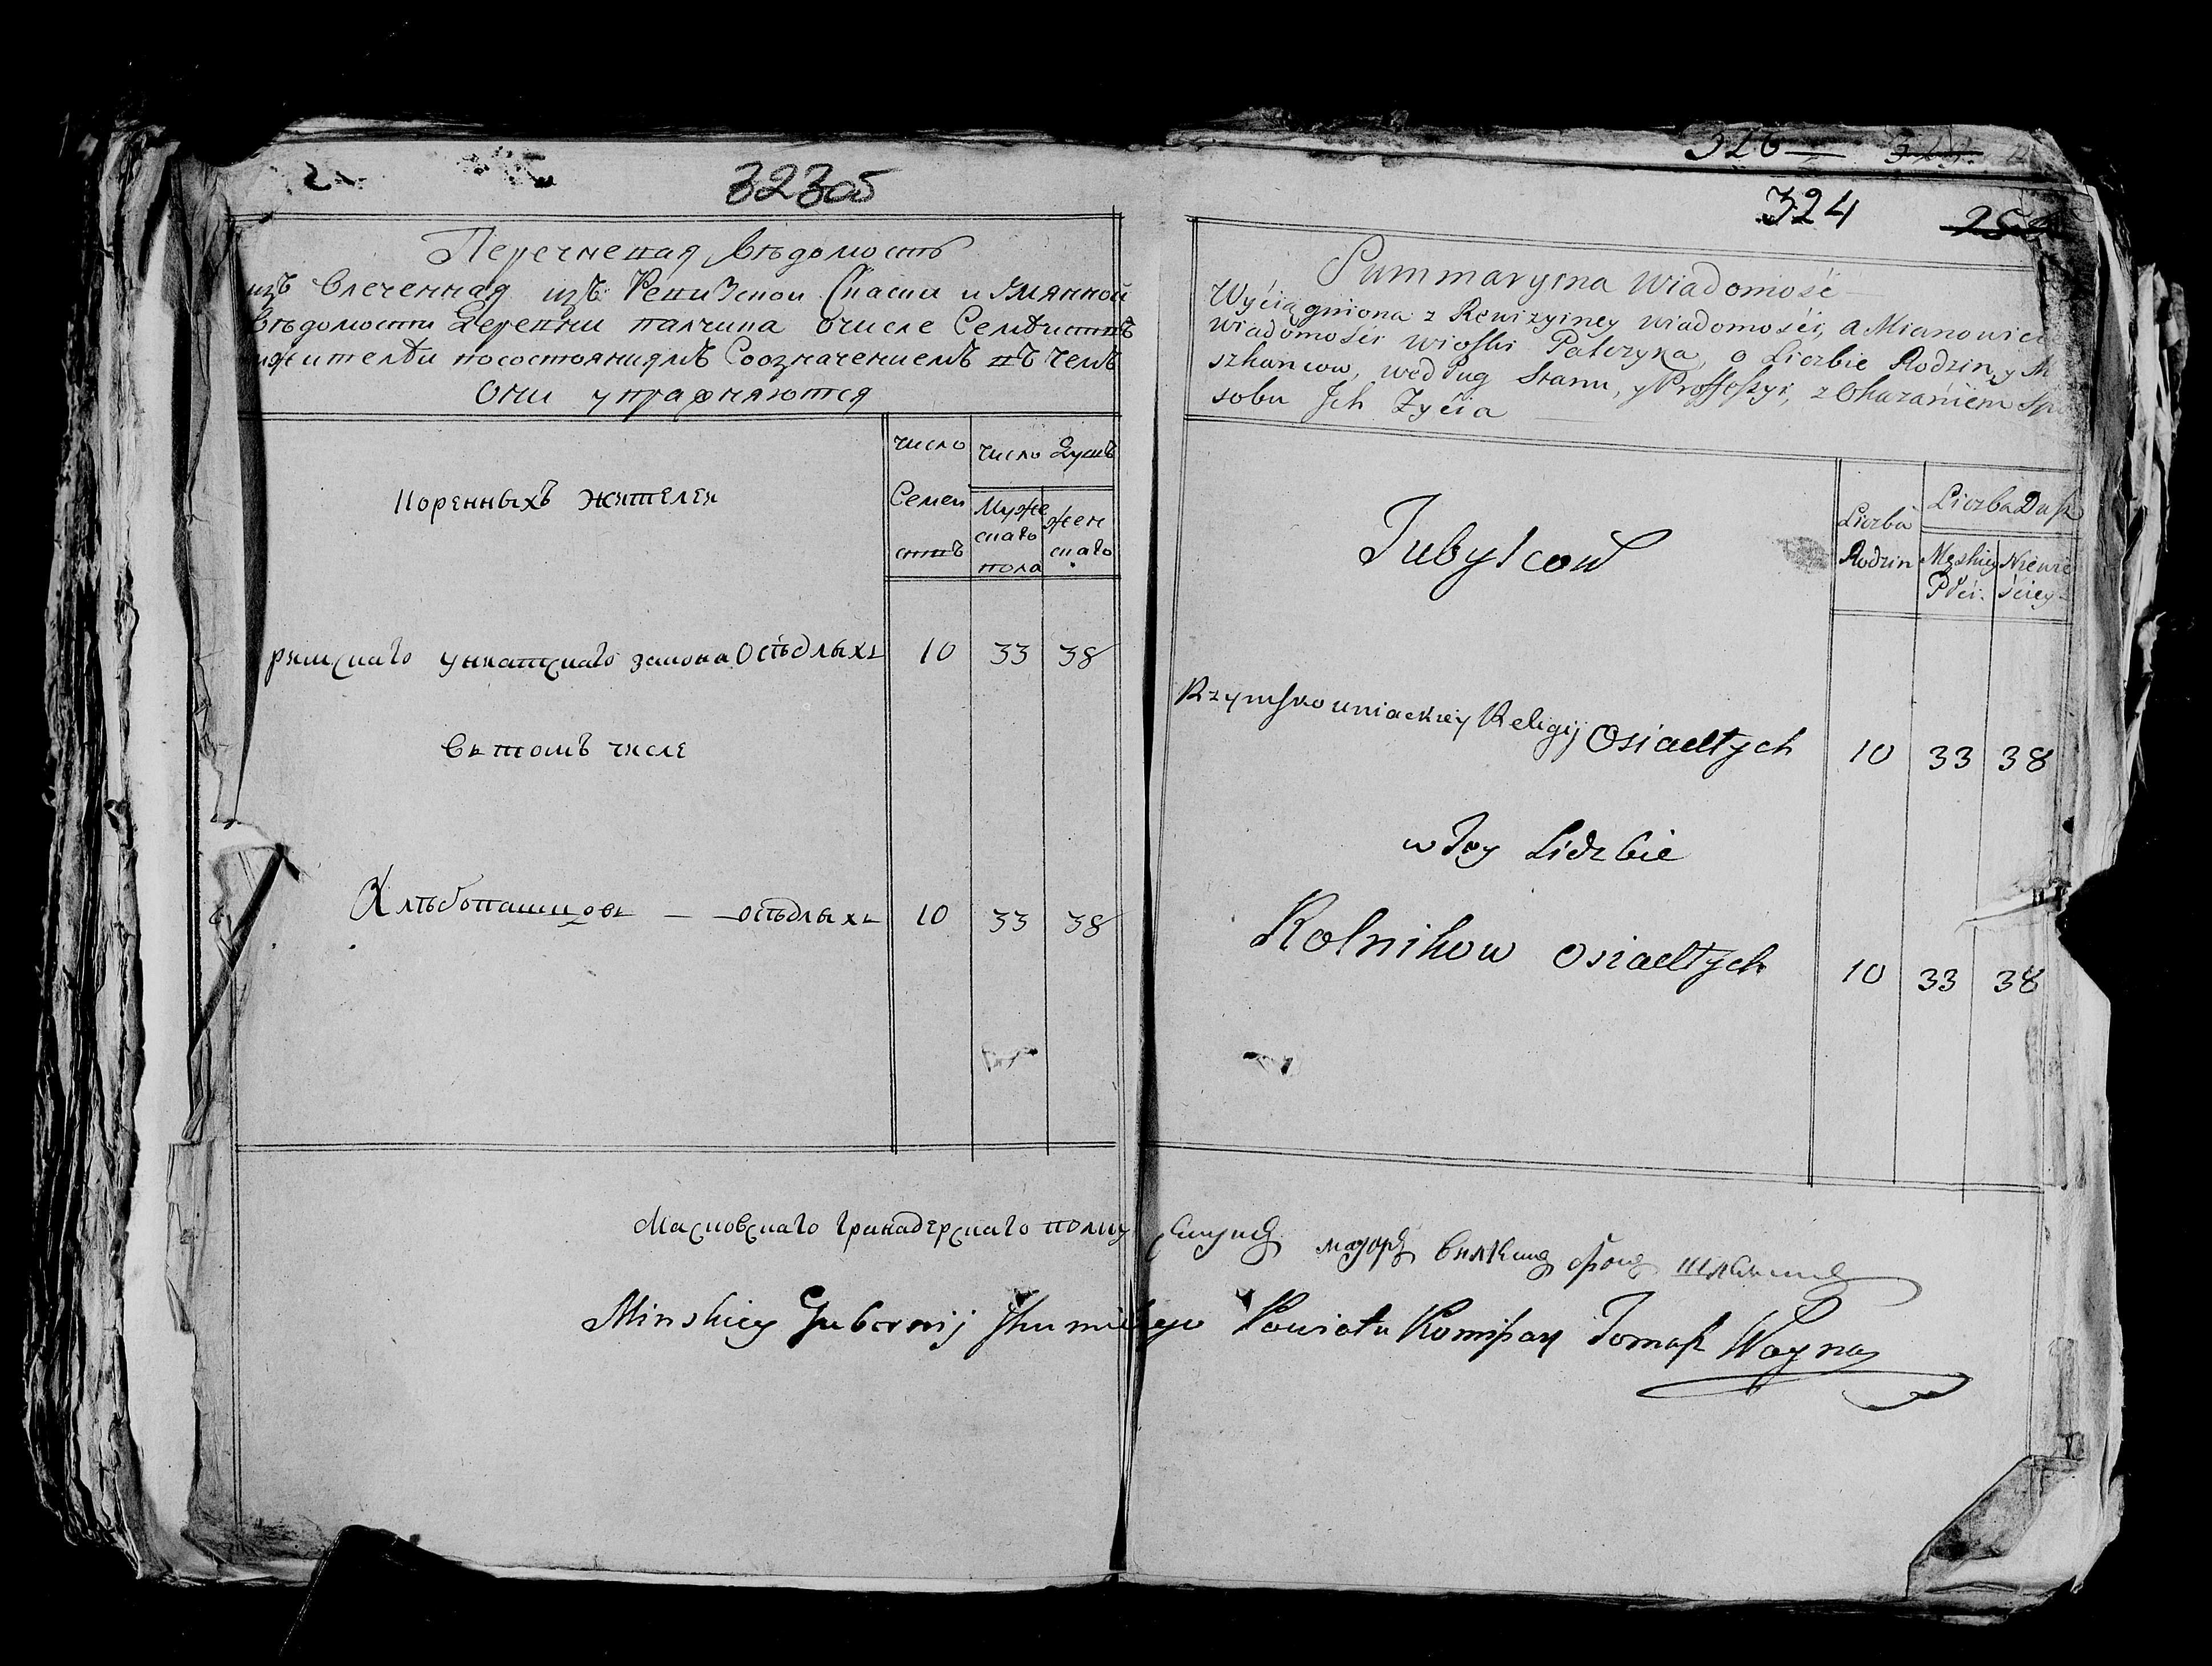 323об
Перечневая вѣдомость
изъ влеченная изъ Ревизской Скаски и Имянной
вѣдомости Деревни палчика очисле Семѣиствъ
ижителѣи посостояниямъ Соозначениемъ въ чемъ
они упражняются
Коренныхъ жителеи
число Семеиствъ
число Душъ
Мужескаго пола
женскаго
римскаго униатскаго закона Осѣдлыхъ 10 33 38
въ томъ числе
Хлѣбопашцовъ — — осѣдлыхъ 10 33 38
326
324
Summaryina Wiadomość
Wyciągniona z Rewizyiney wiadomości, a Mianowicie
wiadomości wioski Palczyka, o Liczbie Rodzin, y M
szkancow, według Stanu, y Proffessyi, z Okazaniem Spo
sobu Jch Życia
Tubylcow
Liczba Rodzin
Liczba Dusz
Męskiey Płci.
Niewieściey
Rzymsko uniackiey Religij Osiadłych 10 33 38
w Tey Liczbie
Rolnikow osiadłych 10 33 38
Масковскаго гранадерскаго полку секунд маиоръ
Minskiey Gubernij Jhumińskiego Powiatu Komisarz Tomasz Woyna